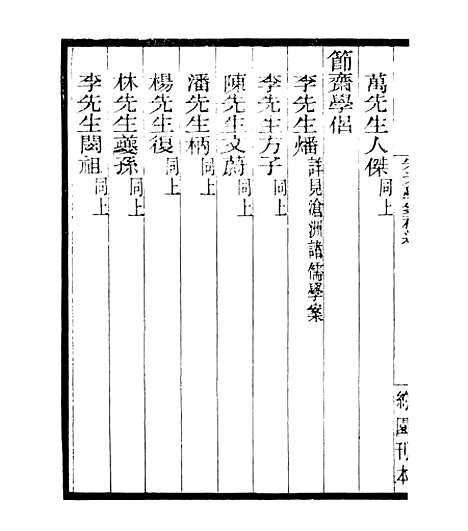 萬先生人傑同上
節齋學侶
李先生燔詳見滄洲諸儒學案
李先生方子同上
陳先生文蔚同上
潘先生柄同上
楊先生復同上
林先生夔孫同上
李先生閎祖同上
約園刊本